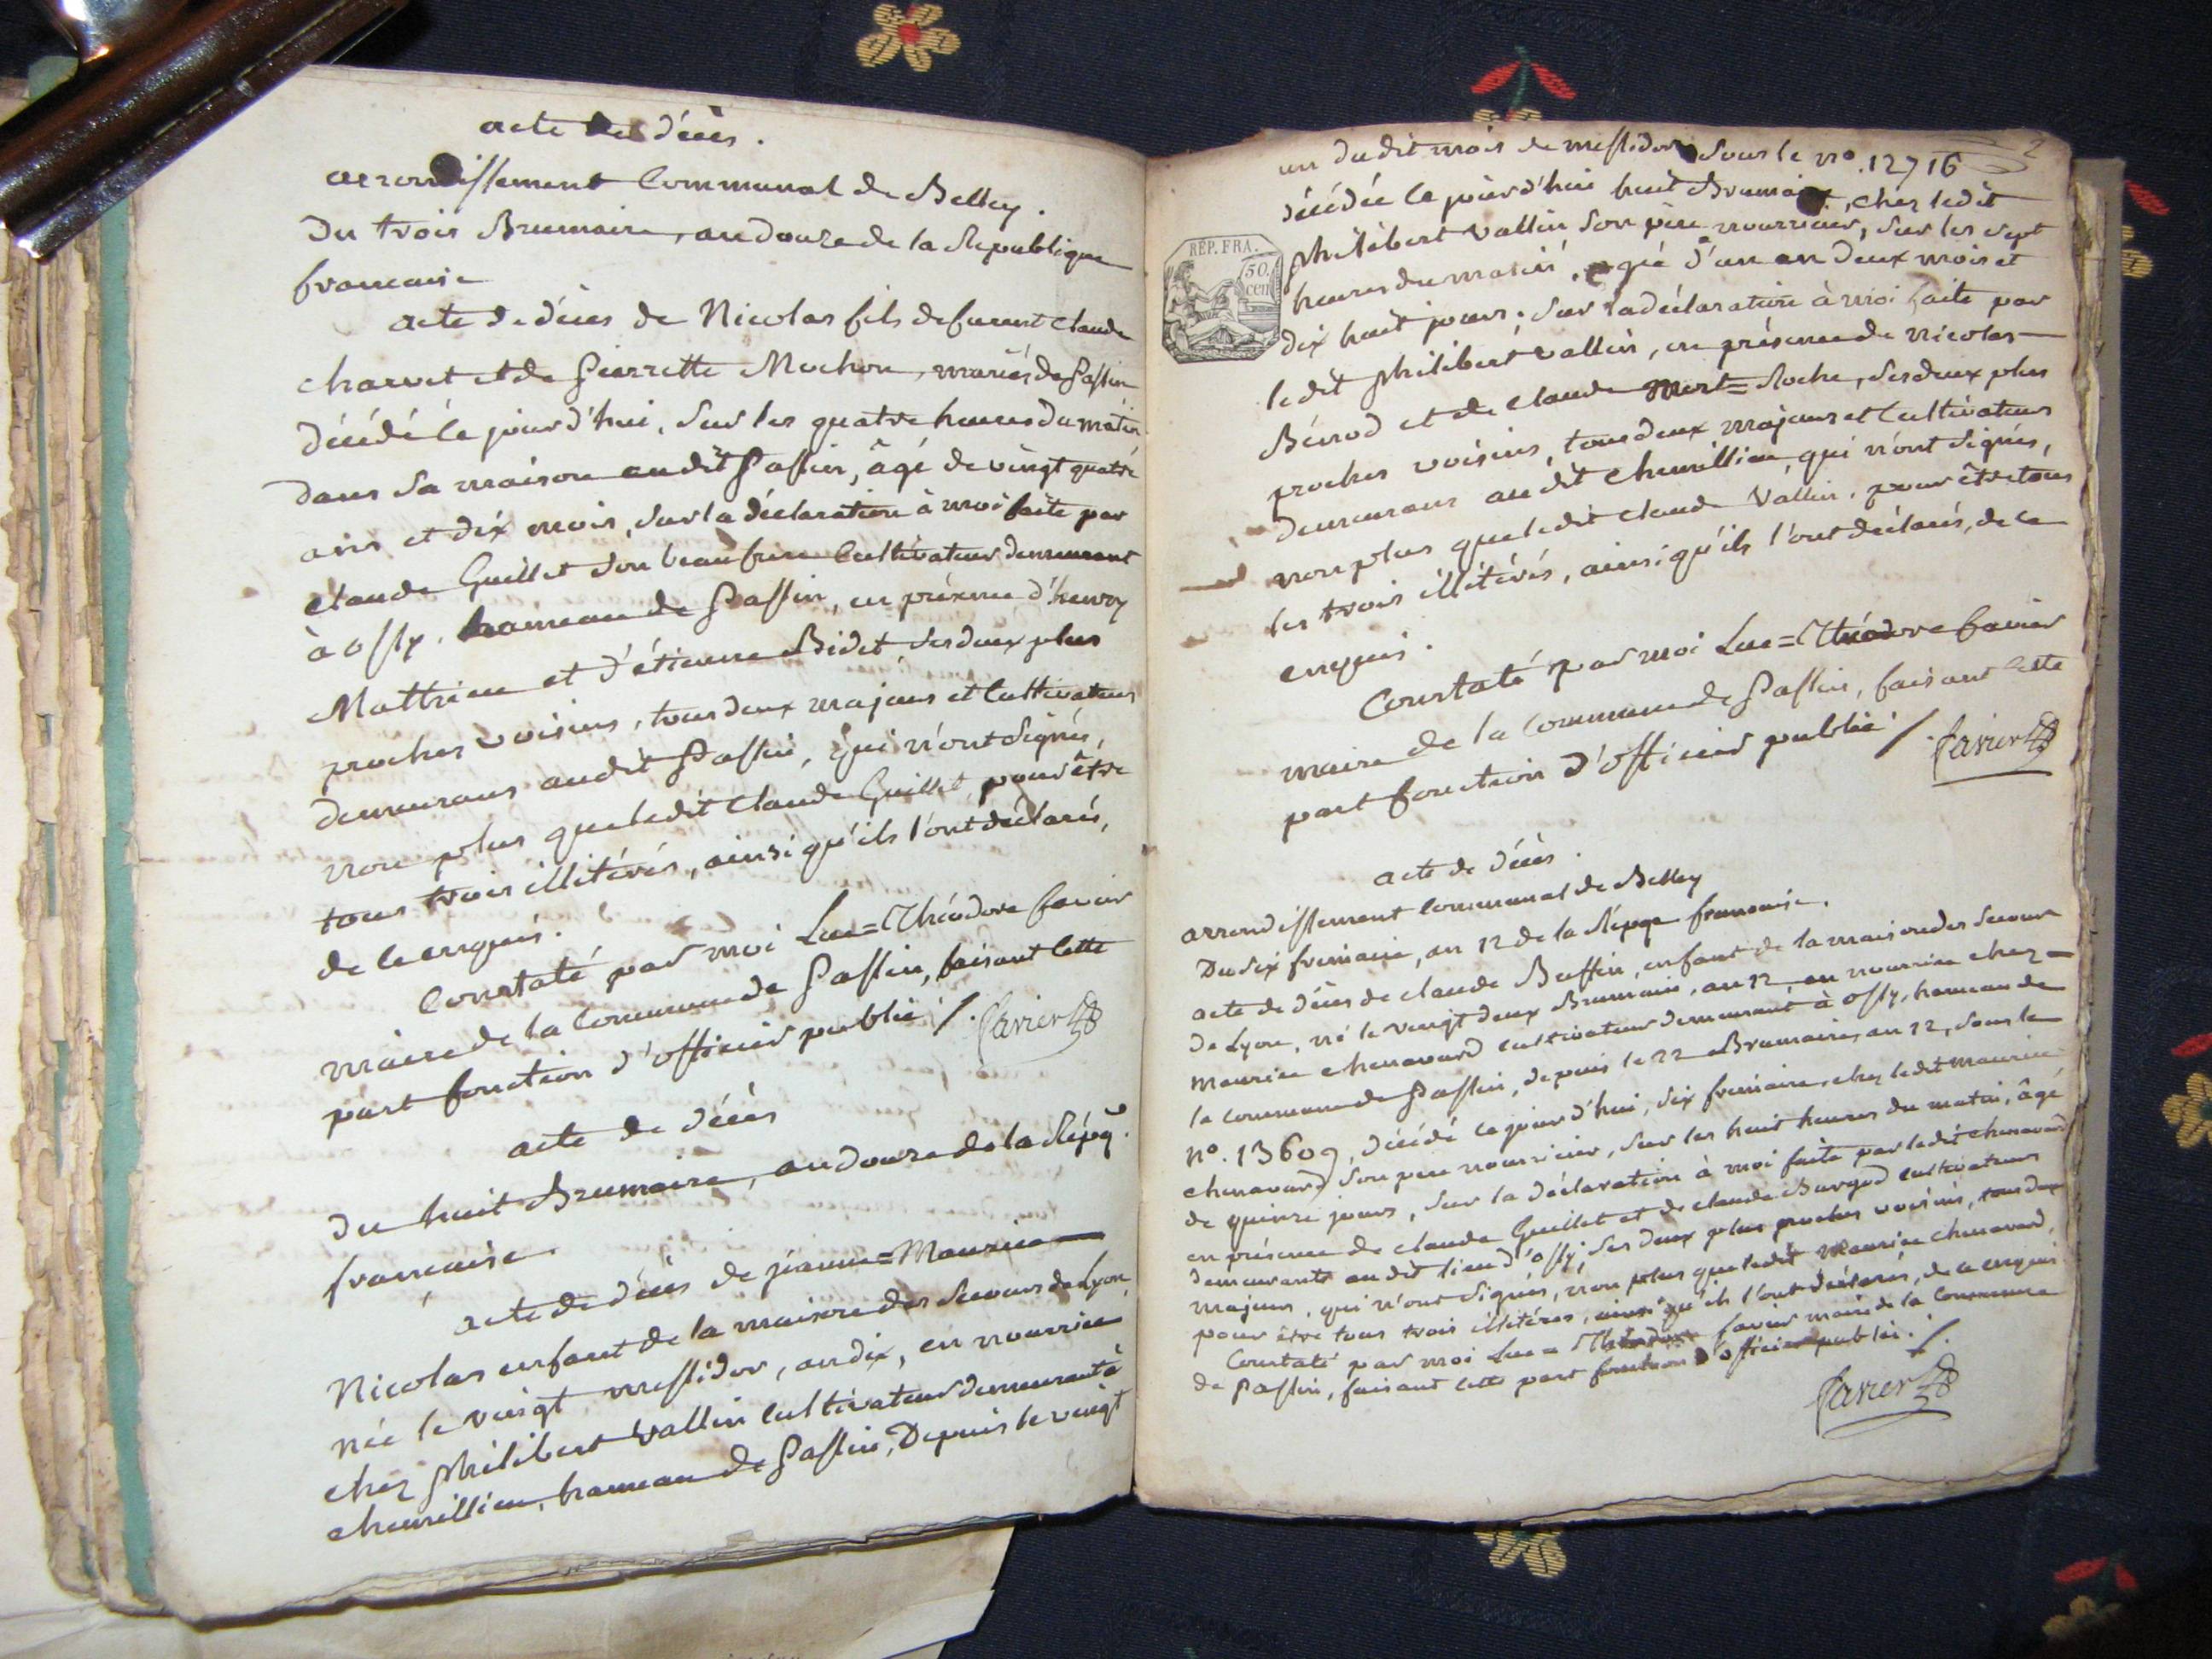 acte de décès.
arrondissement Communal de Belley.
Du trois Brumaire, an douze de la République
française
acte de décès de Nicolas fils de furent Claude
charvet et de Pierrette Mochon, mariés de Passin
décédé ce jourd'hui, sur les quatre heures du matin
dans sa maison audit Passin, âgé de vingt quatre
ans et dix mois, sur la déclaration à moi faite par
claude Guillet son beau frere Cultivateur demeurant
à ossy, hameau de Passin, en présence d'henry
Matthieu et d'étienne Bidet, ses deux plus
proches voisins, tous deux majeurs et Cultivateurs
demeurans audit Passin, qui n'ont signés,
non plus que ledit Claude Guillet, pour être
tous trois illitérés, ainsi qu'ils l'ont déclarés,
de ce enquis.
Constaté par moi Luc=Théodore favier
maire de la Commune de Passin, faisant cette
part fonction d'officier public /. favier
acte de décès
du huit Brumaire, an douze de la Répq.
française
acte de décès de jeanne=Maurice
Nicolas enfant de la maison des secours de Lyon,
née le vingt messidor, an dix, en nourrice
chez philibert vallin cultivateur demeurant à
chemillieu, hameau de Passin, Depuis le vingt
2
un dudit mois de messidor sous le no. 12716
décédée ce jourd'hui huit Brumaire, chez ledit
philibert vallin son père nourricier, sur les sept
heures du matin, agé d'un an deux mois et
dix huit jours. sur la déclaration à moi faite par
ledit philibert vallin, en présence de nicolas
Bérod et de claude mert=Roche, ses deux plus
proches voisins, tous deux majeurs et Cultivateurs
demeurans audit Chemillieu, qui n'ont signés,
non plus que ledit claude Vallin, pour être tous
les trois illitérés, ainsi qu'ils l'ont déclarés, de ce
enquis.
Constaté par moi Luc=Théodore favier
maire de la Commune de Passin, faisant cette
part fonction d'officier public /. favier
REP. FRA.
50.
cen
acte de décès.
arrondissement Communal de Belley
Du six frimaire, an 12 de la Répqe française.
acte de décès de claude Buffin, enfant de la maison des secours
de Lyon, né le vingt deux Brumaire, an 12, en nourrice chez
maurice chenavard cultivateur demeurant à ossy, hameau de
la commune de Passin, depuis le 22 Brumaire, an 12, sous le
no. 13609, décédé ce jourd'hui, six frimaire, chez ledit maurice
chenavard son pere nourricier, sur les huit heures du matin, âgé
de quinze jours, sur la déclaration à moi faite par ledit chenavard
en présence de claude Guillet et de claude Burgod cultivateurs
demeurants audit lieu d'ossy, ses deux plus proches voisins, tous deux
majeurs, qui n'ont signés, non plus que ledit maurice chenavard,
pour être tous trois illitérés, ainsi qu'ils l'ont déclarés, de ce enquis
Constaté par moi Luc=Théodore favier maire de la Commune
de Passin, faisant cette part fonction d'officier public. /.
favier